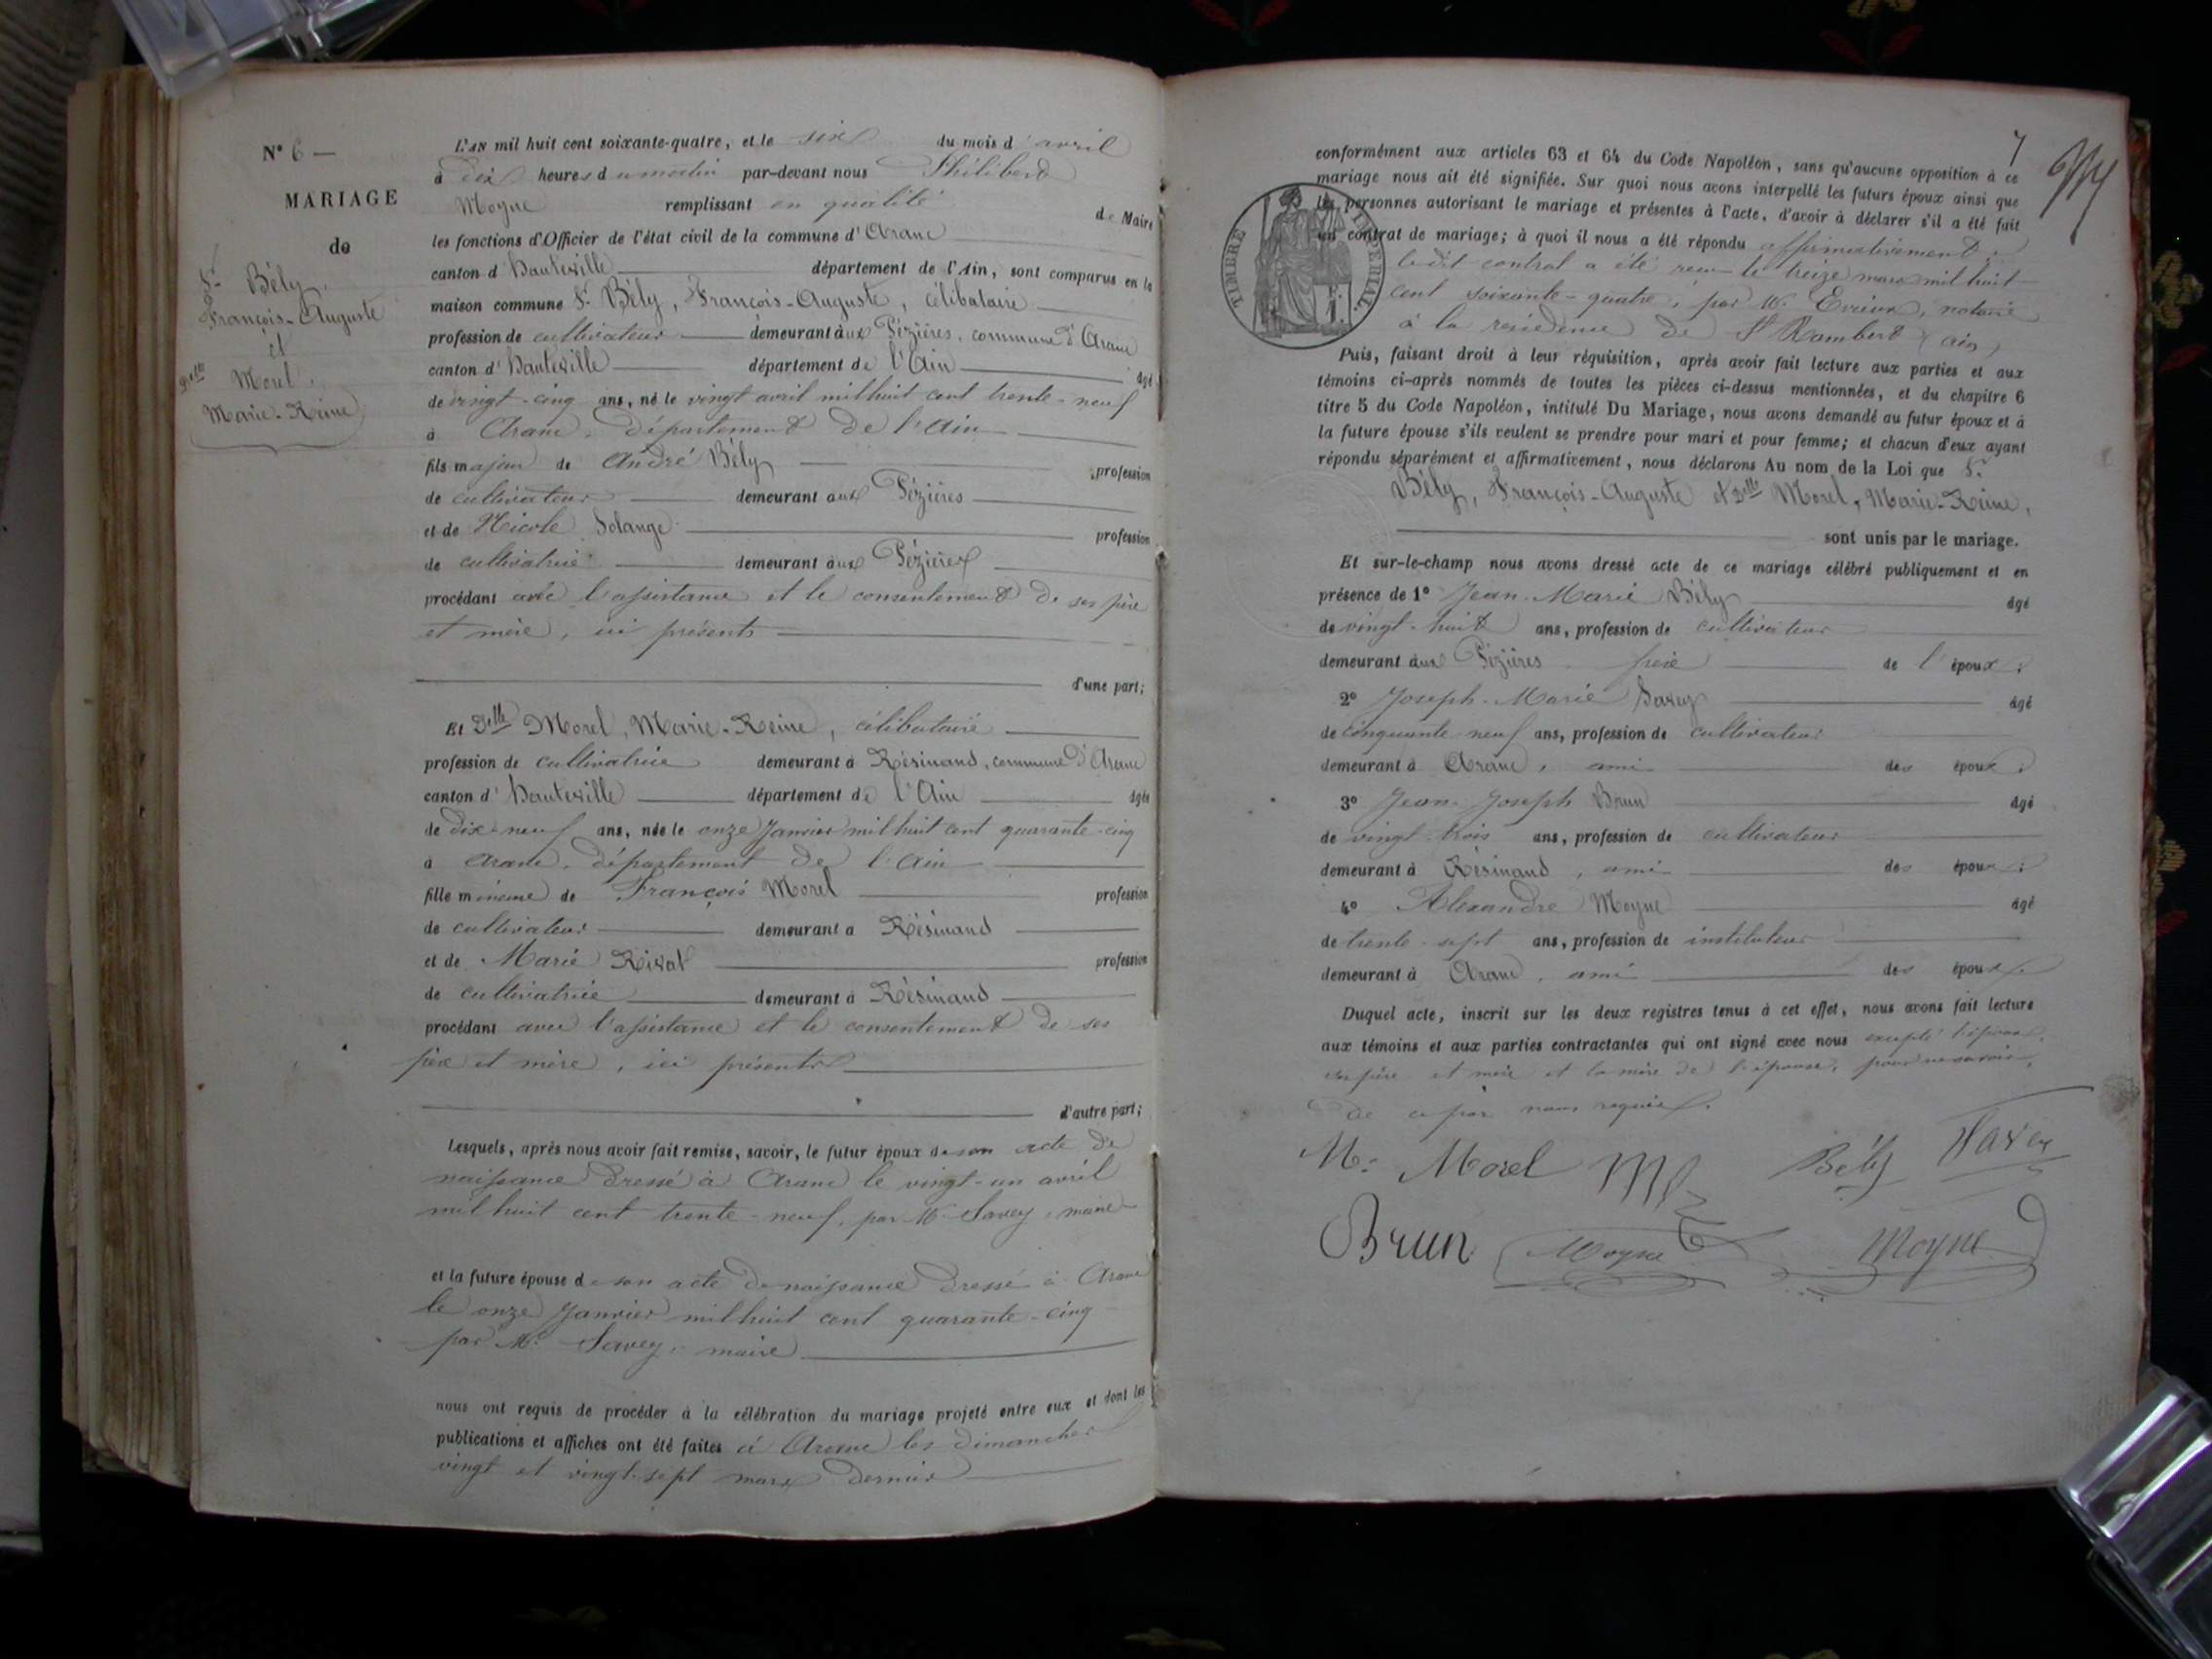 N° 6 —
MARIAGE
de
Sr Bély
François-Auguste
et
Delle Morel
Marie-Reine
L'AN mil huit cent soixante-quatre, et le six du mois d'avril
à dix heures du matin par-devant nous Philibert
Moyne remplissant en qualité de Maire
les fonctions d'Officier de l'état civil de la commune d'Aranc
canton d'Hauteville département de l'Ain, sont comparus en la
maison commune Sr Bély, François-Auguste, célibataire
profession de cultivateur demeurant aux Pézières, commune d'Aranc
canton d'Hauteville département de l'Ain âgé
de vingt-cinq ans, né le vingt avril mil huit cent trente-neuf
à Aranc, département de l'Ain
fils majeur de André Bély profession
de cultivateur demeurant aux Pézières
et de Nicole Solange profession
de cultivatrice demeurant aux Pézières
procédant avec l'assistance et le consentement de ses père
et mère, ici présents
d'une part;
Et Delle Morel, Marie-Reine, célibataire
profession de cultivatrice demeurant à Résinand, commune d'Aranc
canton d'Hauteville département de l'Ain âgée
de dix-neuf ans, née le onze Janvier mil huit cent quarante-cinq
à Aranc, département de l'Ain
fille mineure de François Morel profession
de cultivateur demeurant à Résinand
et de Marie Rivat profession
de cultivatrice demeurant à Résinand
procédant avec l'assistance et le consentement de ses
père et mère, ici présents
d'autre part;
Lesquels, après nous avoir fait remise, savoir, le futur époux de son acte de
naissance dressé à Aranc le vingt-un avril
mil huit cent trente-neuf, par Mr Savey, maire
et la future épouse de son acte de naissance dressé à Aranc
le onze Janvier mil huit cent quarante-cinq
par Mr Savey, maire
nous ont requis de procéder à la célébration du mariage projeté entre eux et dont les
publications et affiches ont été faites à Aranc les dimanches
vingt et vingt-sept mars dernier
7
conformément aux articles 63 et 64 du Code Napoléon, sans qu'aucune opposition à ce
mariage nous ait été signifiée. Sur quoi nous avons interpellé les futurs époux ainsi que
les personnes autorisant le mariage et présentes à l'acte, d'avoir à déclarer s'il a été fait
un contrat de mariage; à quoi il nous a été répondu affirmativement;
TIMBRE IMPERIAL
ledit contrat a été reçu le treize mars mil huit
cent soixante-quatre, par Mr Evrieux, notaire
à la residence de St Rambert (ain)
Puis, faisant droit à leur réquisition, après avoir fait lecture aux parties et aux
témoins ci-après nommés de toutes les pièces ci-dessus mentionnées, et du chapitre 6
titre 5 du Code Napoléon, intitulé Du Mariage, nous avons demandé au futur époux et à
la future épouse s'ils veulent se prendre pour mari et pour femme; et chacun d'eux ayant
répondu séparément et affirmativement, nous déclarons Au nom de la Loi que Sr
Bély, François-Auguste et Delle Morel, Marie-Reine,
sont unis par le mariage.
Et sur-le-champ nous avons dressé acte de ce mariage célébré publiquement et en
présence de 1° Jean-Marie Bély âgé
de vingt-huit ans, profession de cultivateur
demeurant aux Pézières frère de l'époux;
2° Joseph-Marie Savey âgé
de cinquante neuf ans, profession de cultivateur
demeurant à Aranc, ami des époux;
3° Jean-Joseph Brun âgé
de vingt-trois ans, profession de cultivateur
demeurant à Résinand, ami des époux;
4° Alexandre Moyne âgé
de trente-sept ans, profession de instituteur
demeurant à Aranc, ami des époux.
Duquel acte, inscrit sur les deux registres tenus à cet effet, nous avons fait lecture
aux témoins et aux parties contractantes qui ont signé avec nous excepté l'époux,
ses père et mère et la mère de l'épouse, pour ne savoir,
de ce par nous requis.
M. Morel Bély Savey
Brun Moyne Moyne